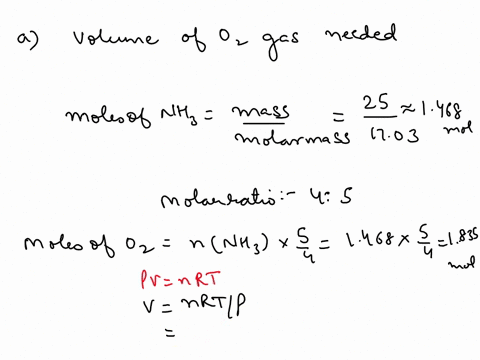 a) volume of O₂ gas needed
moles of NH₃ = mass/molar mass = 25/17.03 ≈ 1.468 mol
molar ratio :- 4:5
moles of O₂ = n(NH₃) × 5/4 = 1.468 × 5/4 = 1.835 mol
PV = nRT
V = nRT/P
=